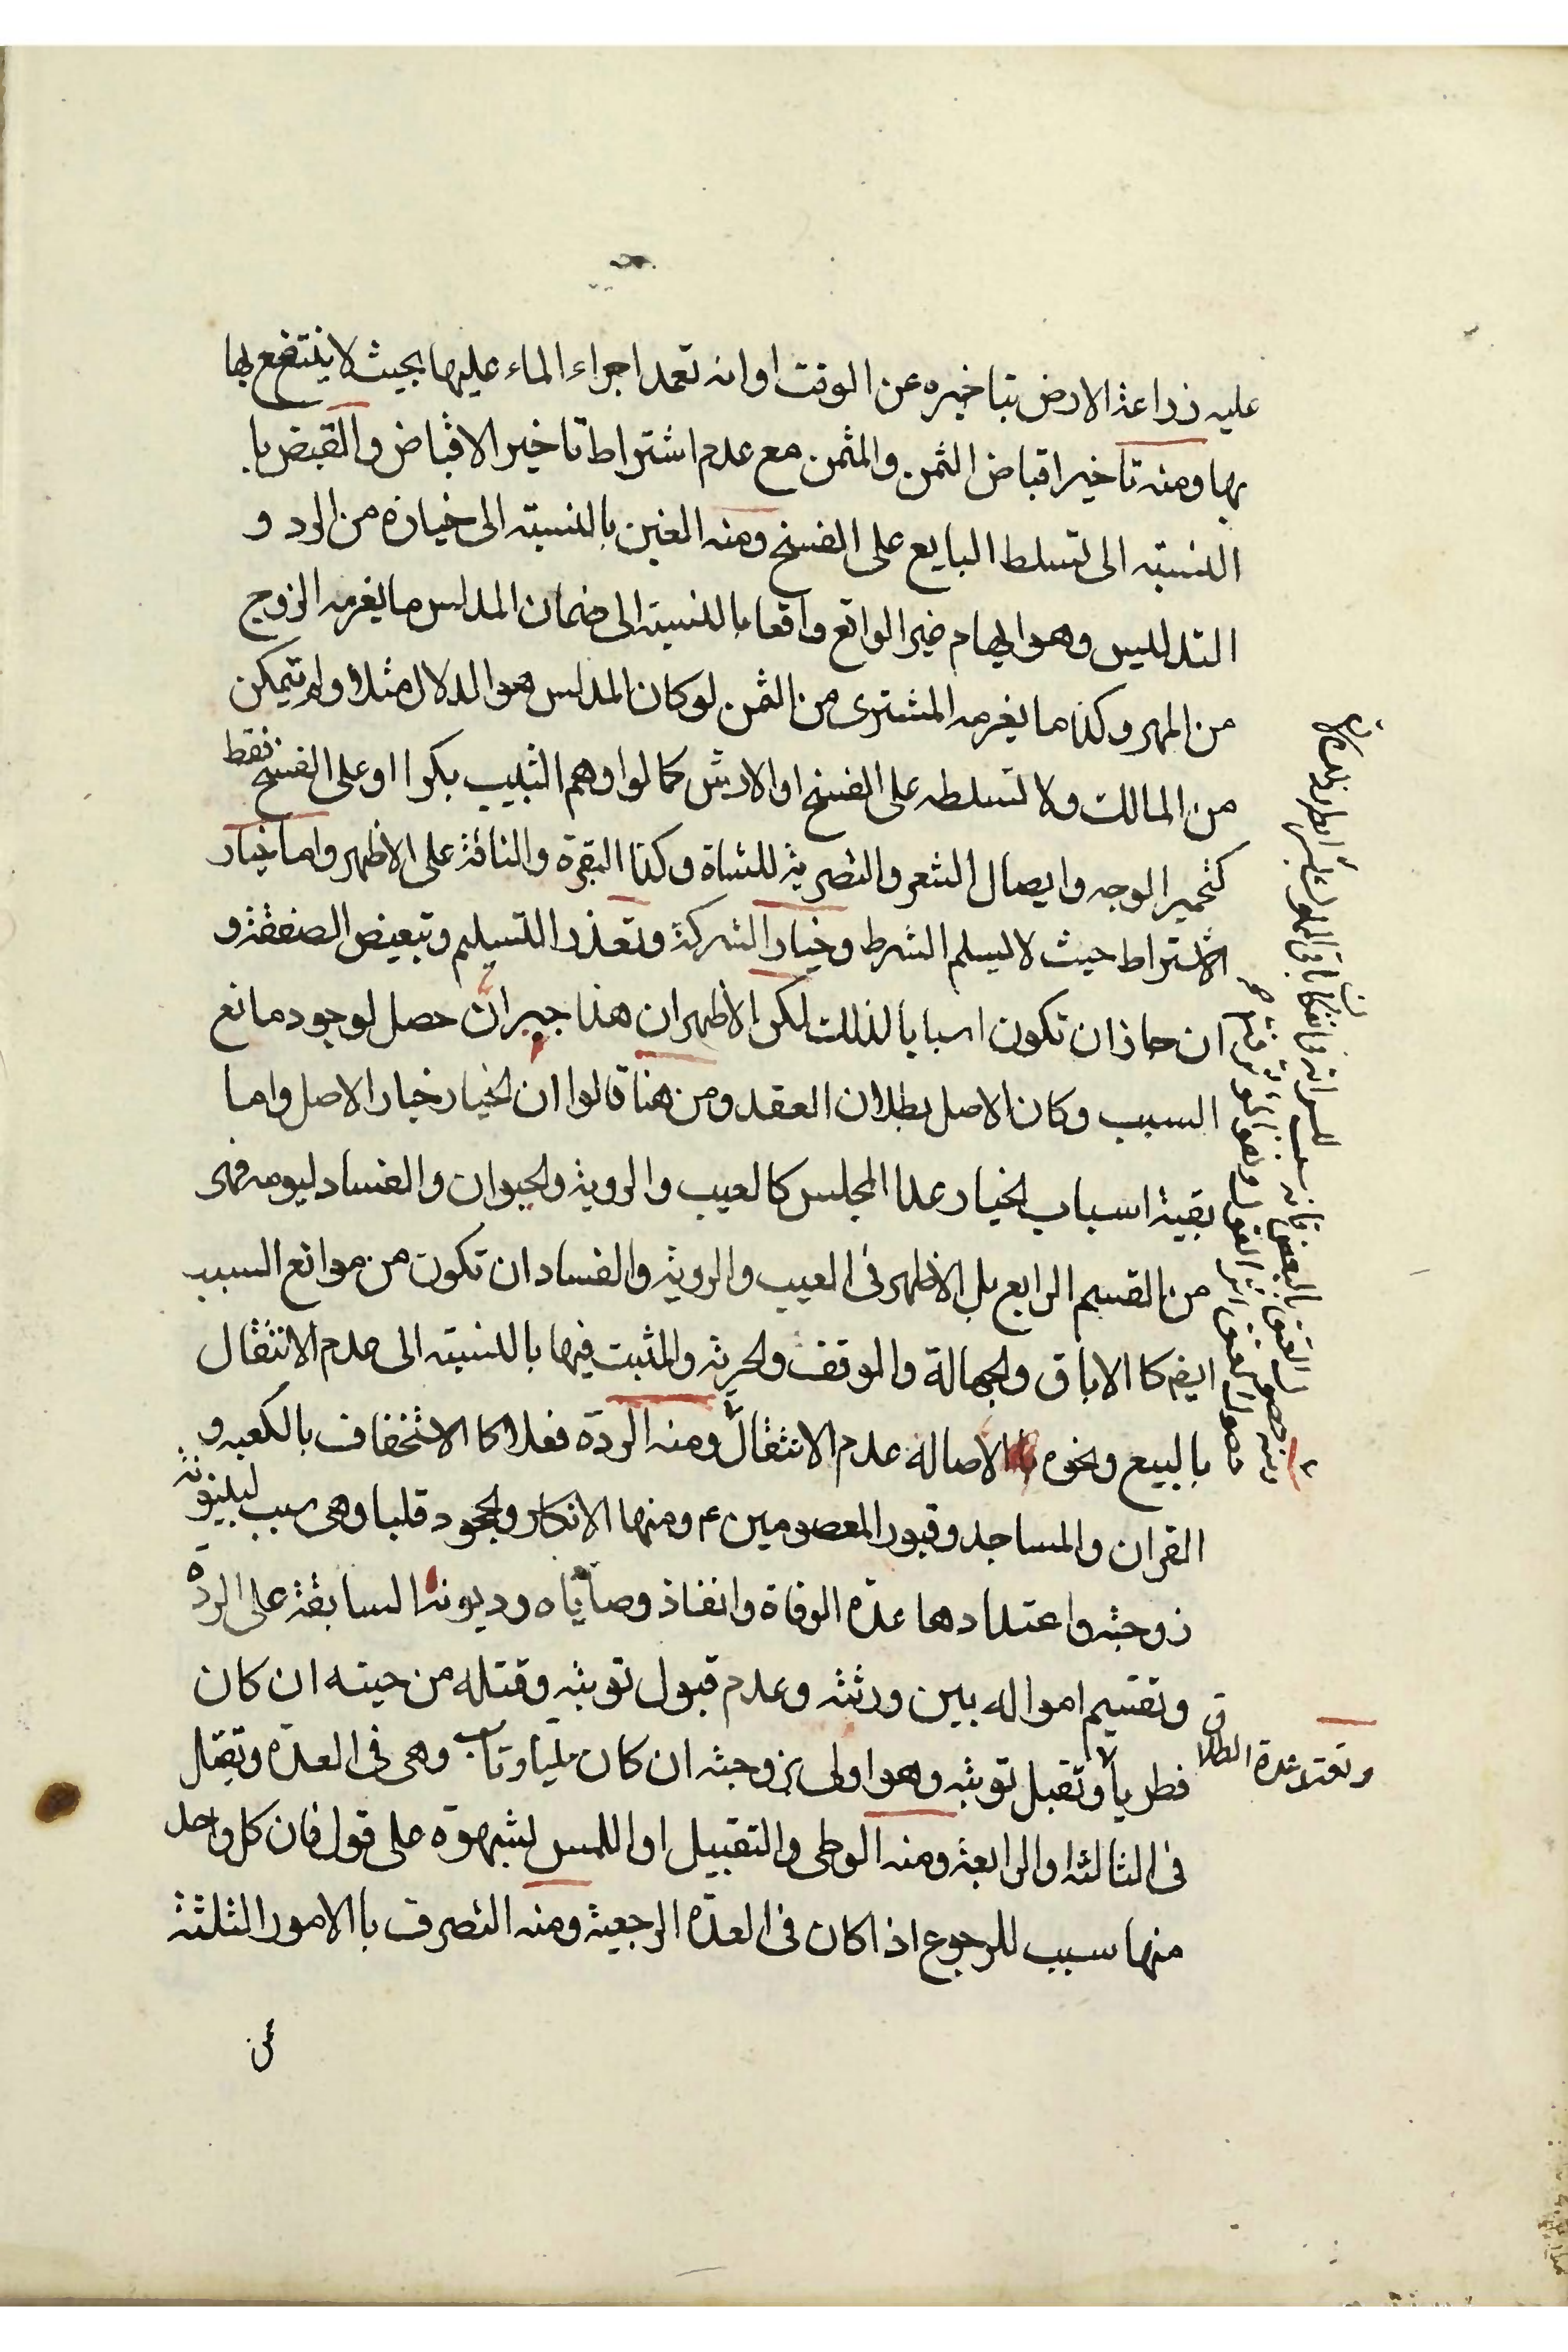 عليه زراعة الارض بتاخيره عن الوقت او انه تعمد اجراء الماء عليها بحيث لا ينتفع بها
بها ومنه تاخير اقباض الثمن والمثمن مع عدم اشتراط تاخير الاقباض والقبض با
النسبته الى تسلط البايع على الفسخ ومنه الغبن بالنسبته الى خياره من الرد و
التدليس وهو ايهام غير الواقع واقعا بالنسبته الى ضمان المدلس ما يغرمه الزوج
من المهر وكذا ما يغرمه المشترى من الثمن لو كان المدلس هو الدلال مثلا ولم تمكن
من المالك ولا تسلطه على الفسخ او الارش كما لو اوهم الثيب بكرا او على الفسخ فقط
كتحمير الوجه وايصال الشعر والتصرية للشاة وكذا البقرة والناقة على الاظهر واما خيار
الاشتراط حيث لا يسلم الشرط وخيار الشركة وتعذر التسليم وتبعيض الصفقة و
ان جاز ان تكون اسبابا لذلك لكن الاظهر ان هذا جبران حصل لوجود مانع
السبب وكان الاصل بطلان العقد ومن هنا قالوا ان الخيار خيار الاصل واما
بقية اسباب الخيار عدا المجلس كالعيب والروية والحيوان والفساد ليومه فهى
من القسم الرابع بل الاظهر فى العيب والروية والفساد ان تكون من موانع السبب
ايضا كا الاباق والجهالة والوقف والحرية والمثبت فيها بالنسبته الى عدم الانتقال
بالبيع ونحوه الاصاله عدم الانتقال ومنه الردة فعلا كا الاستخفاف بالكعبه و
القران والمساجد وقبور المعصومين ع ومنها الانكار والجحود قلبا وهى سبب لبينونة
زوجته واعتدادها عدة الوفاة وانفاذ وصاياه وديونه السابقة على الردة
وتقسيم امواله بين ورثته وعدم قبول توبته وقتله من حيته ان كان
فطريا وتقبل توبته وهو اولى بزوجته ان كان مليا وتاب وهى فى العدة وتقتل
فى الثالثه او الرابعة ومنه الوطى والتقبيل او اللمس لشهوة على قول فان كل واحد
منها سبب للرجوع اذا كان فى العدة الرجعية ومنه التصرف با الامور الثلثة
من
وتعتد عدة الطلاق